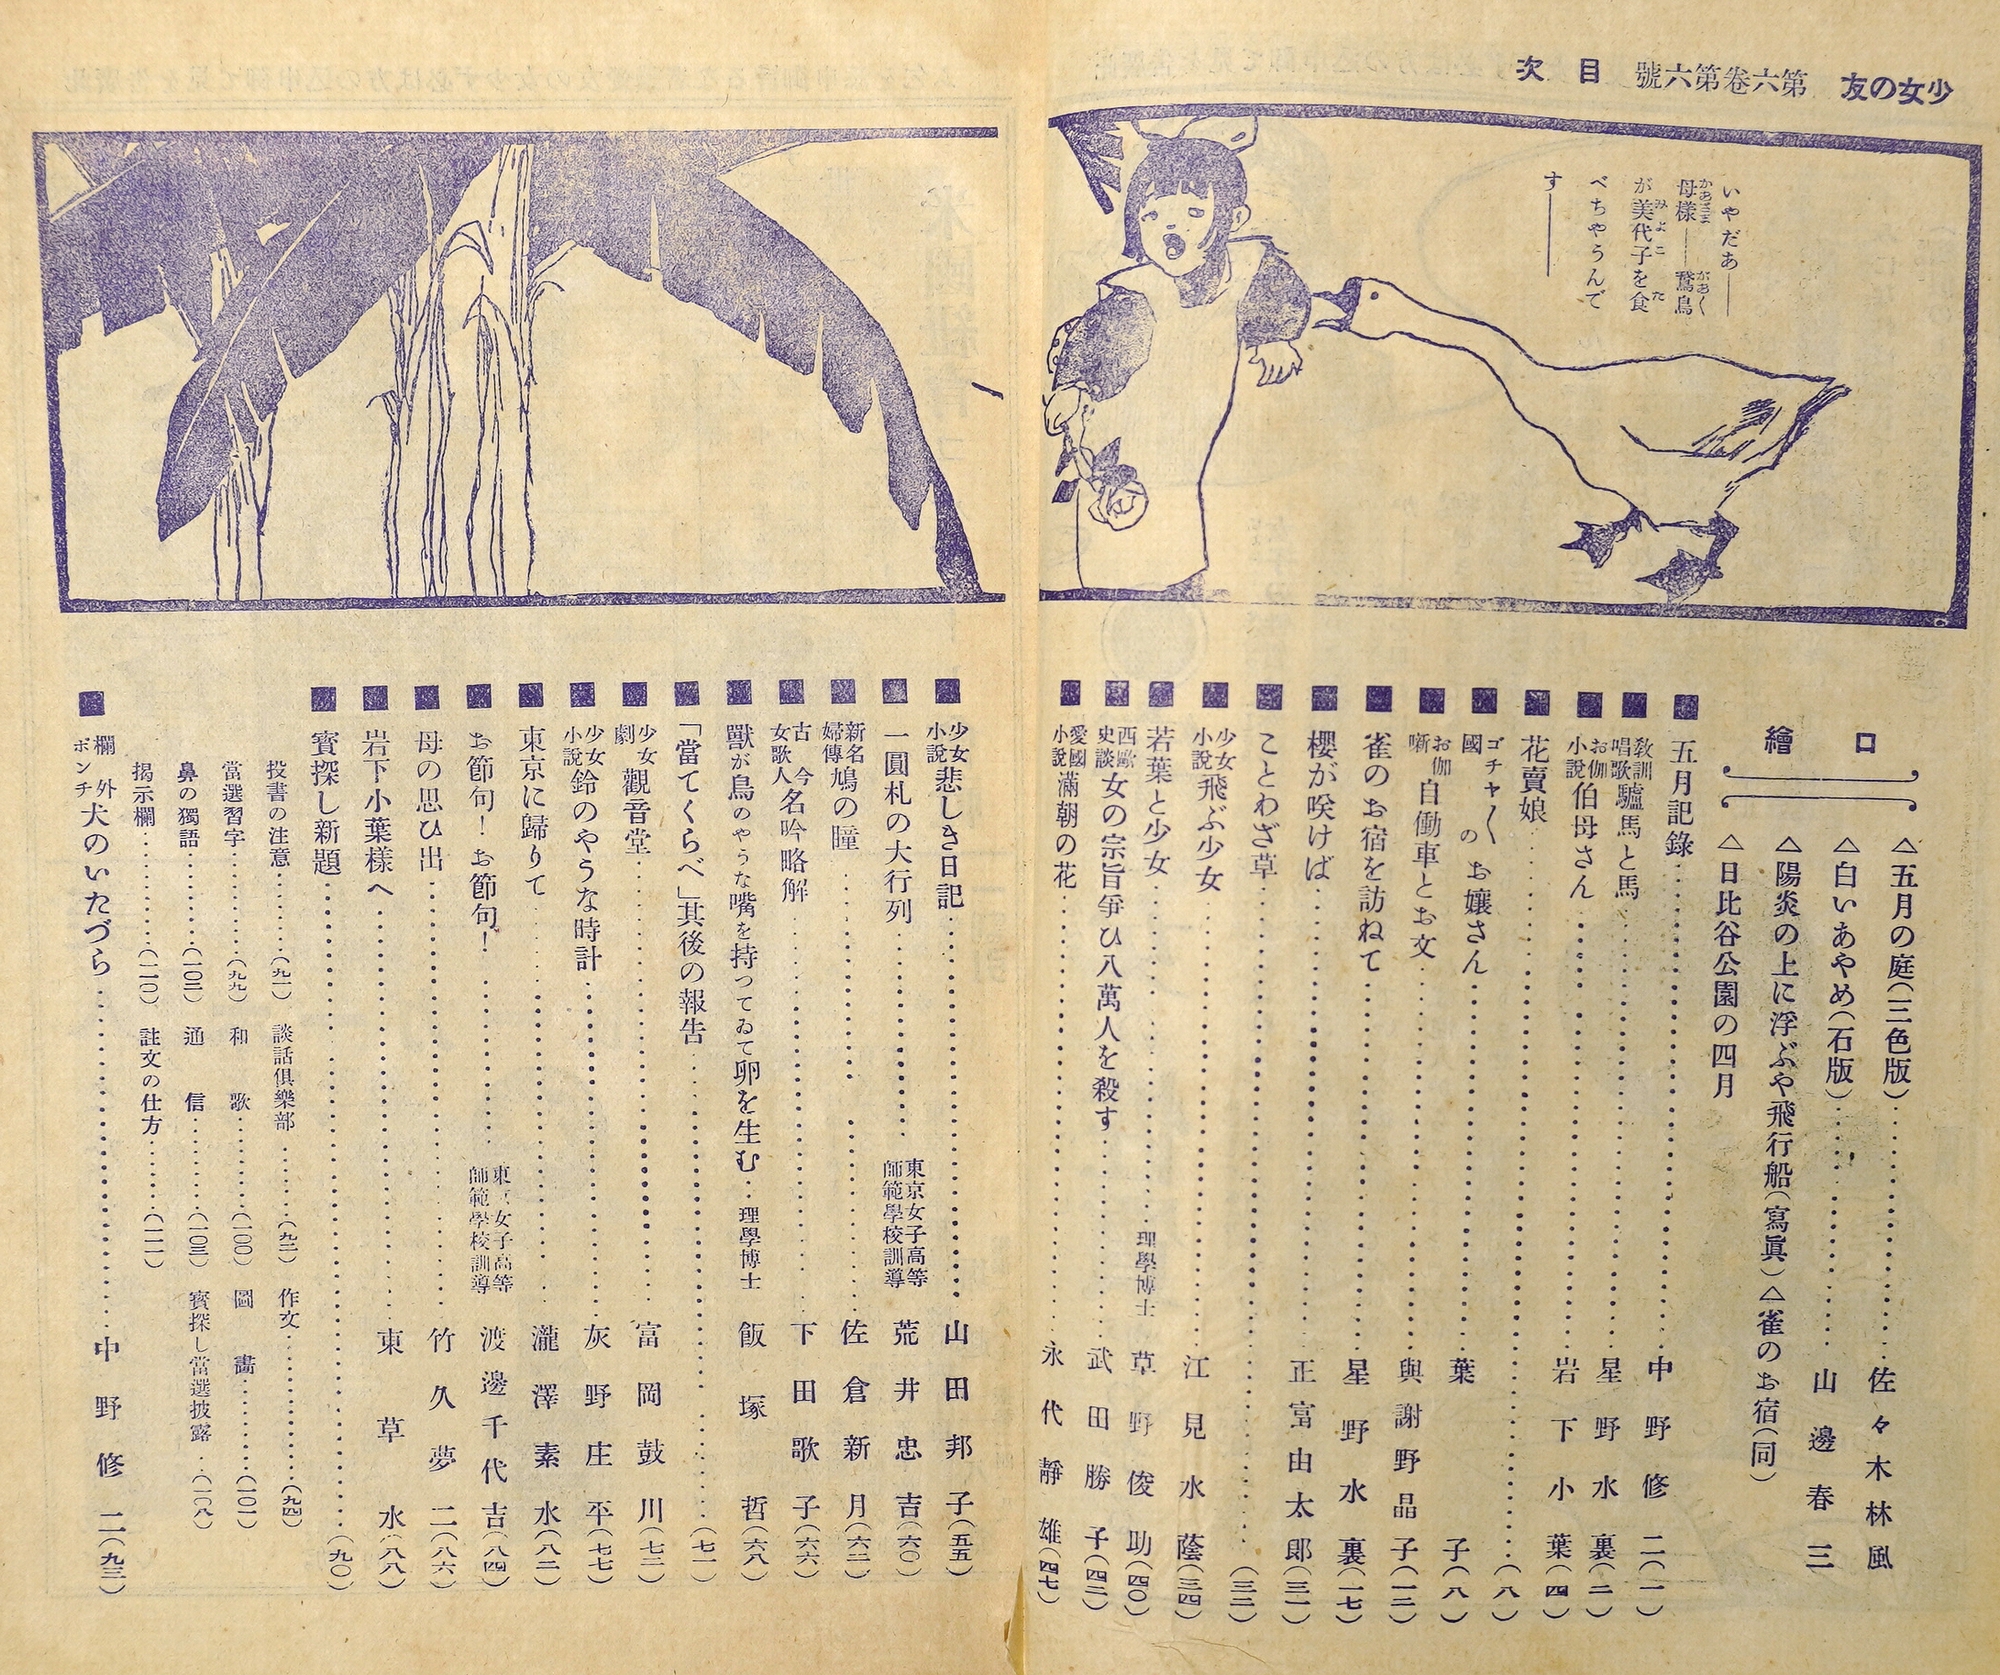 少女の友 第六卷第六號 目次
いやだあ――
母様――鵞鳥
が美代子を食
べちやうんで
す――
口繪
△五月の庭(三色版)……佐々木林風
△白いあやめ(石版)……山邊春三
△陽炎の上に浮ぶや飛行船(寫眞)△雀のお宿(同)
△日比谷公園の四月
■五月記錄……中野修二(一)
■教訓唱歌 驢馬と馬……星野水裏(二)
■お伽小說 伯母さん……岩下小葉(四)
■花賣娘……(八)
■ゴチャ〱國のお孃さん……葉子(八)
■お伽噺 自働車とお文……與謝野晶子(一二)
■雀のお宿を訪ねて……星野水裏(一七)
■櫻が咲けば……正富由太郎(三一)
■ことわざ草……(三二)
■少女小說 飛ぶ少女……江見水蔭(三四)
■若葉と少女……理學博士 草野俊助(四〇)
■西歐史談 女の宗旨爭ひ八萬人を殺す……武田勝子(四二)
■愛國小說 滿朝の花……永代靜雄(四七)
■少女小說 悲しき日記……山田邦子(五五)
■一圓札の大行列……東京女子高等師範學校訓導 荒井忠吉(六〇)
■新名婦傳 鳩の瞳……佐倉新月(六二)
■古今女歌人 名吟略解……下田歌子(六六)
■獸が鳥のやうな嘴を持つてゐて卵を生む…理學博士 飯塚哲(六八)
■「當てくらべ」其後の報告……(七一)
■少女劇 觀音堂……富岡鼓川(七二)
■少女小說 鈴のやうな時計……灰野庄平(七七)
■東京に歸りて……瀧澤素水(八二)
■お節句!お節句!……東京女子高等師範學校訓導 渡邊千代吉(八四)
■母の思ひ出……竹久夢二(八六)
■岩下小葉樣へ……東草水(八八)
■寶探し新題……(九〇)
投書の注意……(九一) 談話俱樂部……(九二) 作文……(九四)
當選習字……(九九) 和歌……(一〇〇) 圖畵……(一〇一)
鼻の獨語……(一〇二) 通信……(一〇三) 寶探し當選披露…(一〇八)
揭示欄……(一一〇) 註文の仕方……(一一一)
■欄外ポンチ 犬のいたづら……中野修二(九三)